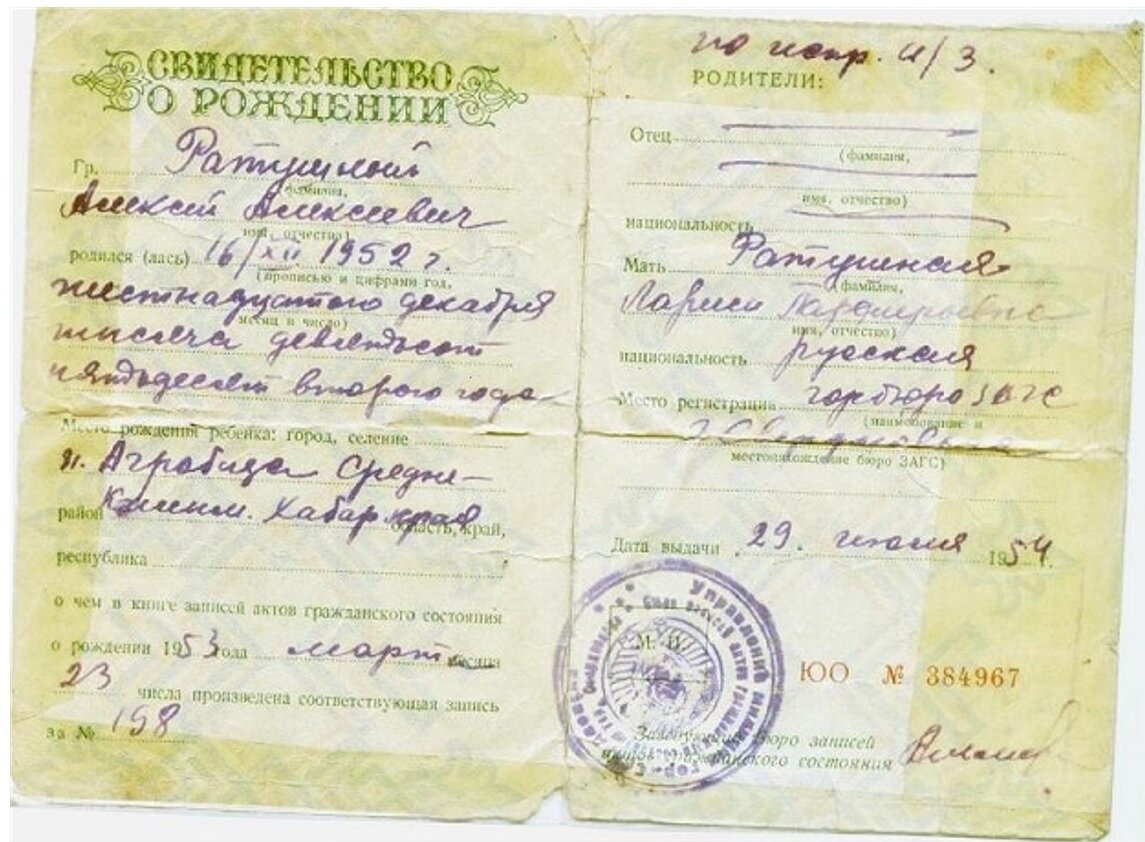 СВИДЕТЕЛЬСТВО
О РОЖДЕНИИ
Гр. Ратушный
(фамилия,
Алексей Алексеевич
имя, отчество)
родился (лась) 16/XII 1952 г.
(прописью и цифрами год,
шестнадцатого декабря
месяц и число)
тысяча девятьсот
пятьдесят второго года
Место рождения ребенка: город, селение
п. Агробаза Средне-
район Каним. Хабар края область, край,
республика
о чем в книге записей актов гражданского состояния
о рождении 1953 года март месяца
23 числа произведена соответствующая запись
за № 198
по испр. и/з.
РОДИТЕЛИ:
Отец
(фамилия,
имя, отчество)
национальность
Мать Ратушная
(фамилия,
Лариса
имя, отчество)
национальность русская
Место регистрации горбюро ЗАГС
(наименование и
г. Свердловска
местонахождение бюро ЗАГС)
Дата выдачи 29 июля 1954 г.
М. П.
Управление
ЮО № 384967
Заведующий бюро записей
актов гражданского состояния